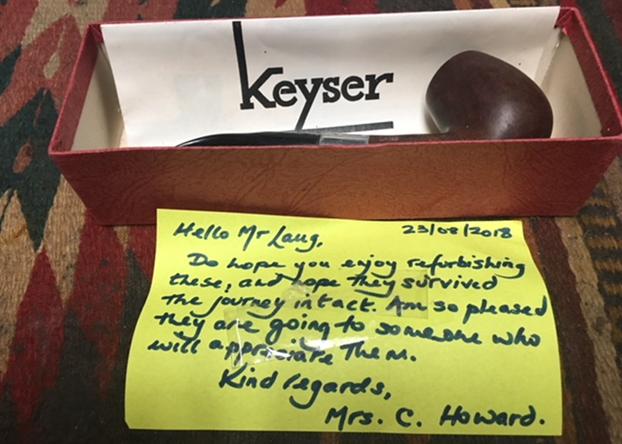 Keyser
Hello Mr Laug, 23/08/2018
Do hope you enjoy refurbishing
these, and hope they survived
the journey intact. Am so pleased
they are going to someone who
will appreciate them.
Kind regards,
Mrs. C. Howard.